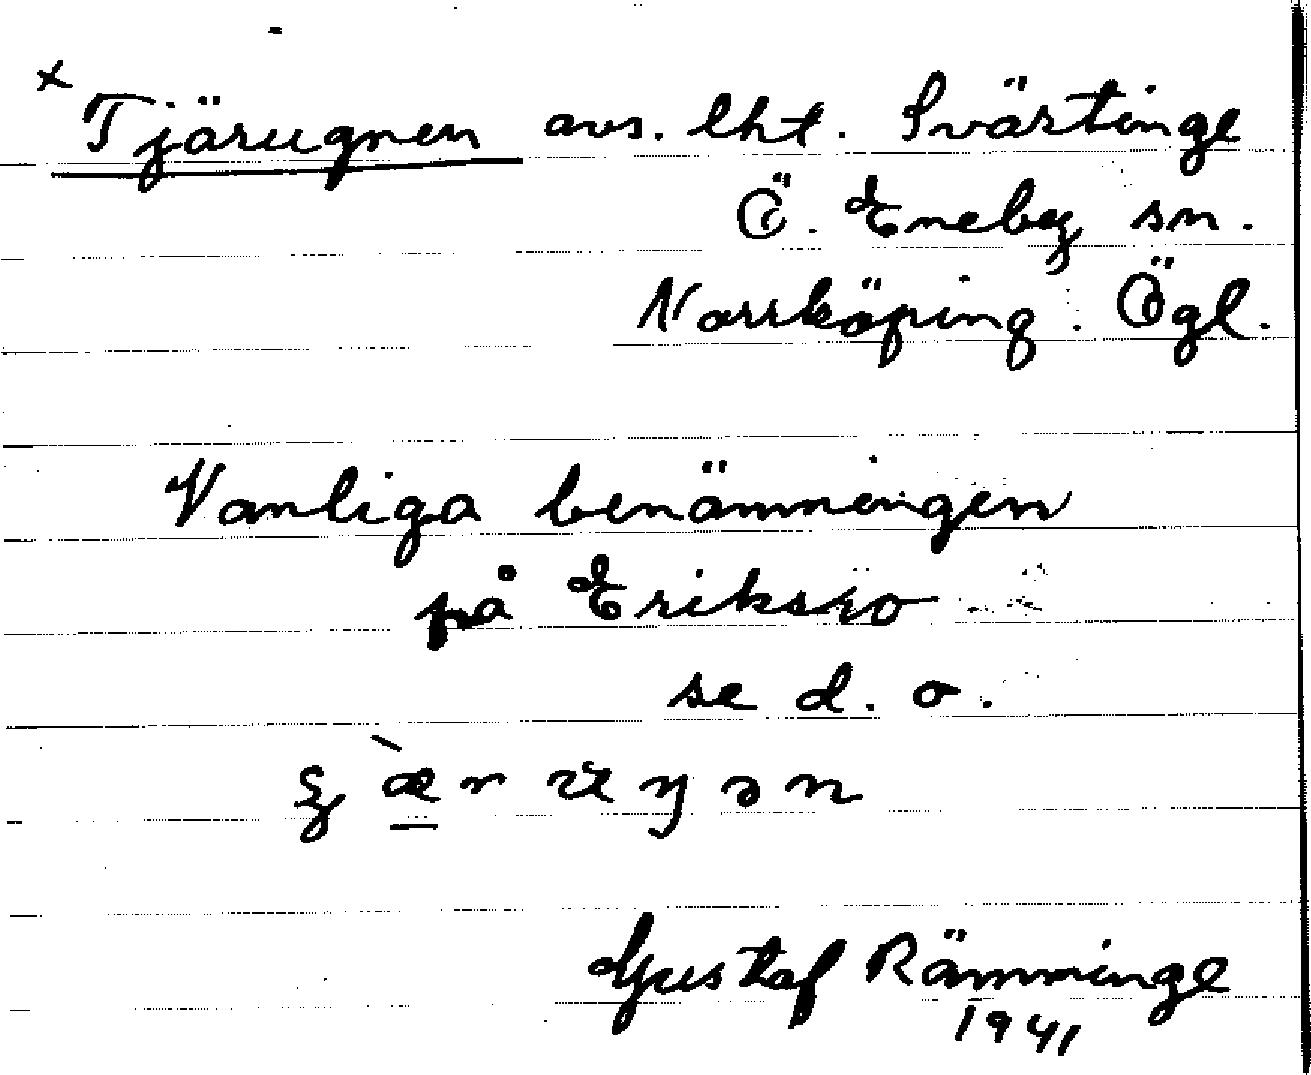 x Tjärugnen avs. lht. Svärtinge
Ö. Eneby sn.
Norrköping. Ögl.
Vanliga benämningen
på Eriksro
se d. o.
Gustaf Rämminge
1941